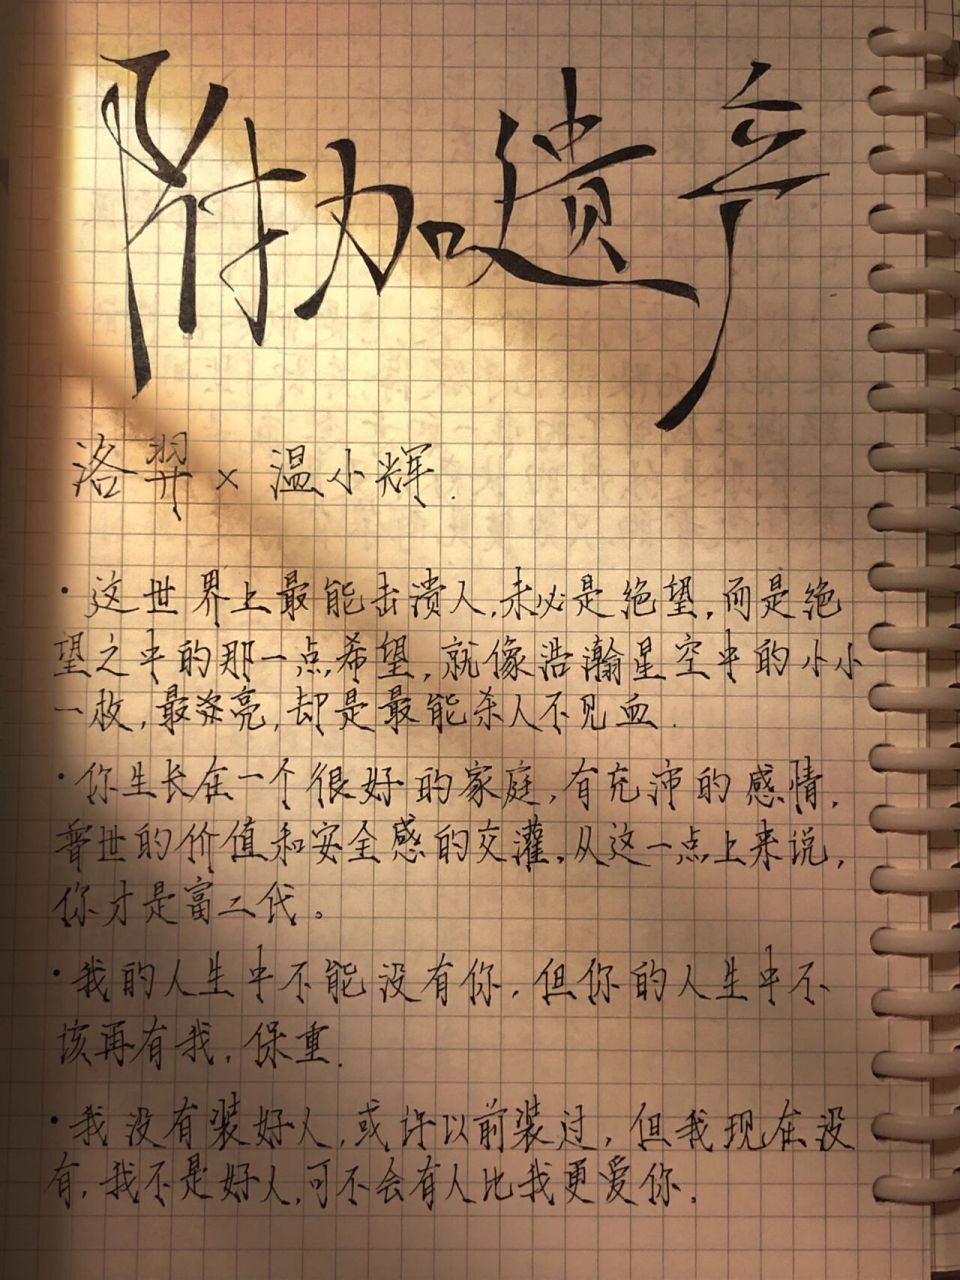 附加遗产
洛羿 × 温小辉.
·这世界上最能击溃人,未必是绝望,而是绝
望之中的那一点希望,就像浩瀚星空中的小小
一枚,最涤亮,却是最能杀人不见血.
·你生长在一个很好的家庭,有充沛的感情,
普世的价值和安全感的交灌,从这一点上来说,
你才是富二代。
·我的人生中不能没有你,但你的人生中不
该再有我,保重.
·我没有装好人,或许以前装过,但我现在没
有,我不是好人,可不会有人比我更爱你.